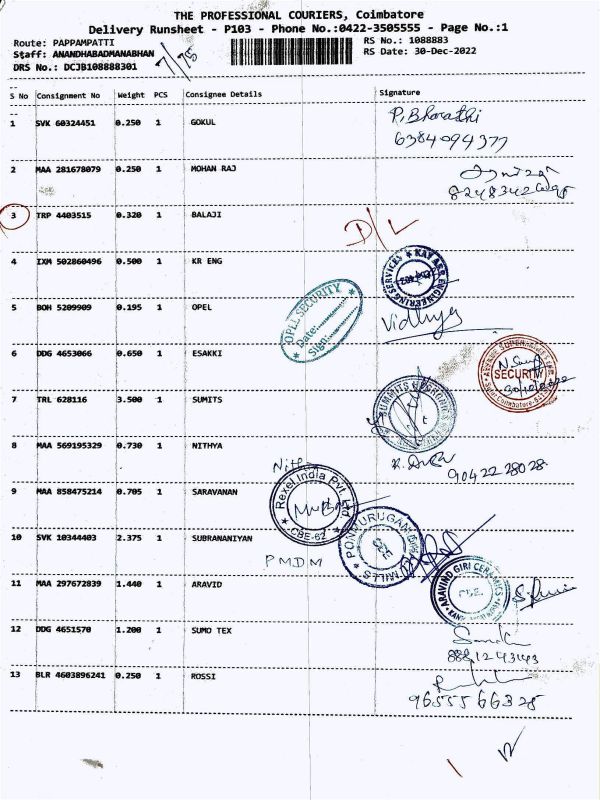 THE PROFESSIONAL COURIERS, Coimbatore
Delivery Runsheet - P103 - Phone No.:0422-3505555 - Page No.:1
Route: PAPPAMPATTI
RS No.: 1088883
Staff: ANANDHABADMANABHAN
RS Date: 30-Dec-2022
DRS No.: DCJB108888301
S No Consignment No Weight PCS Consignee Details Signature
1 SVK 60324451 0.250 1 GOKUL P. Bharathi
6384094377
2 MAA 281678079 0.250 1 MOHAN RAJ
3 TRP 4403515 0.320 1 BALAJI
D/L
4 IXM 502860496 0.500 1 KR ENG
KAY ARR ENGINEERING SERVICES
5 BOH 5209909 0.195 1 OPEL
OPLL SECURITY
Date:
Sign:
Vidhya
6 DDG 4653066 0.650 1 ESAKKI
SECURITY
7 TRL 628116 3.500 1 SUMITS
8 MAA 569195329 0.730 1 NITHYA
90422 28028
Nith
9 MAA 858475214 0.705 1 SARAVANAN
Rexel India Pvt. Ltd
CBE-62
10 SVK 10344403 2.375 1 SUBRANANIYAN
PONMURUGAN MILLS
PMDM
11 MAA 297672839 1.440 1 ARAVID
ARAVIND GIRI CERAMICS
12 DDG 4651570 1.200 1 SUMO TEX
8881243143
13 BLR 4603896241 0.250 1 ROSSI
9655566325